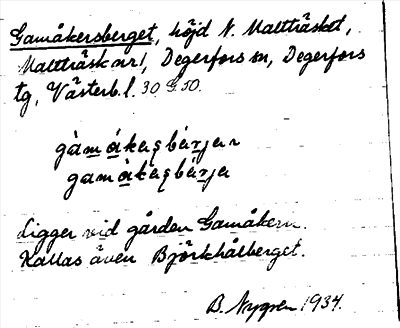 Gamåkersberget, höjd N. Maltträsket,
Maltträsk nr 1, Degerfors sn, Degerfors
tg, Västerb. l. 30 G 50.
gàmákaʂbárjar
gamàkaʂbárja
Ligger vid gården Gamåkern.
Kallas även Björkhålberget.
B. Nygren 1934.